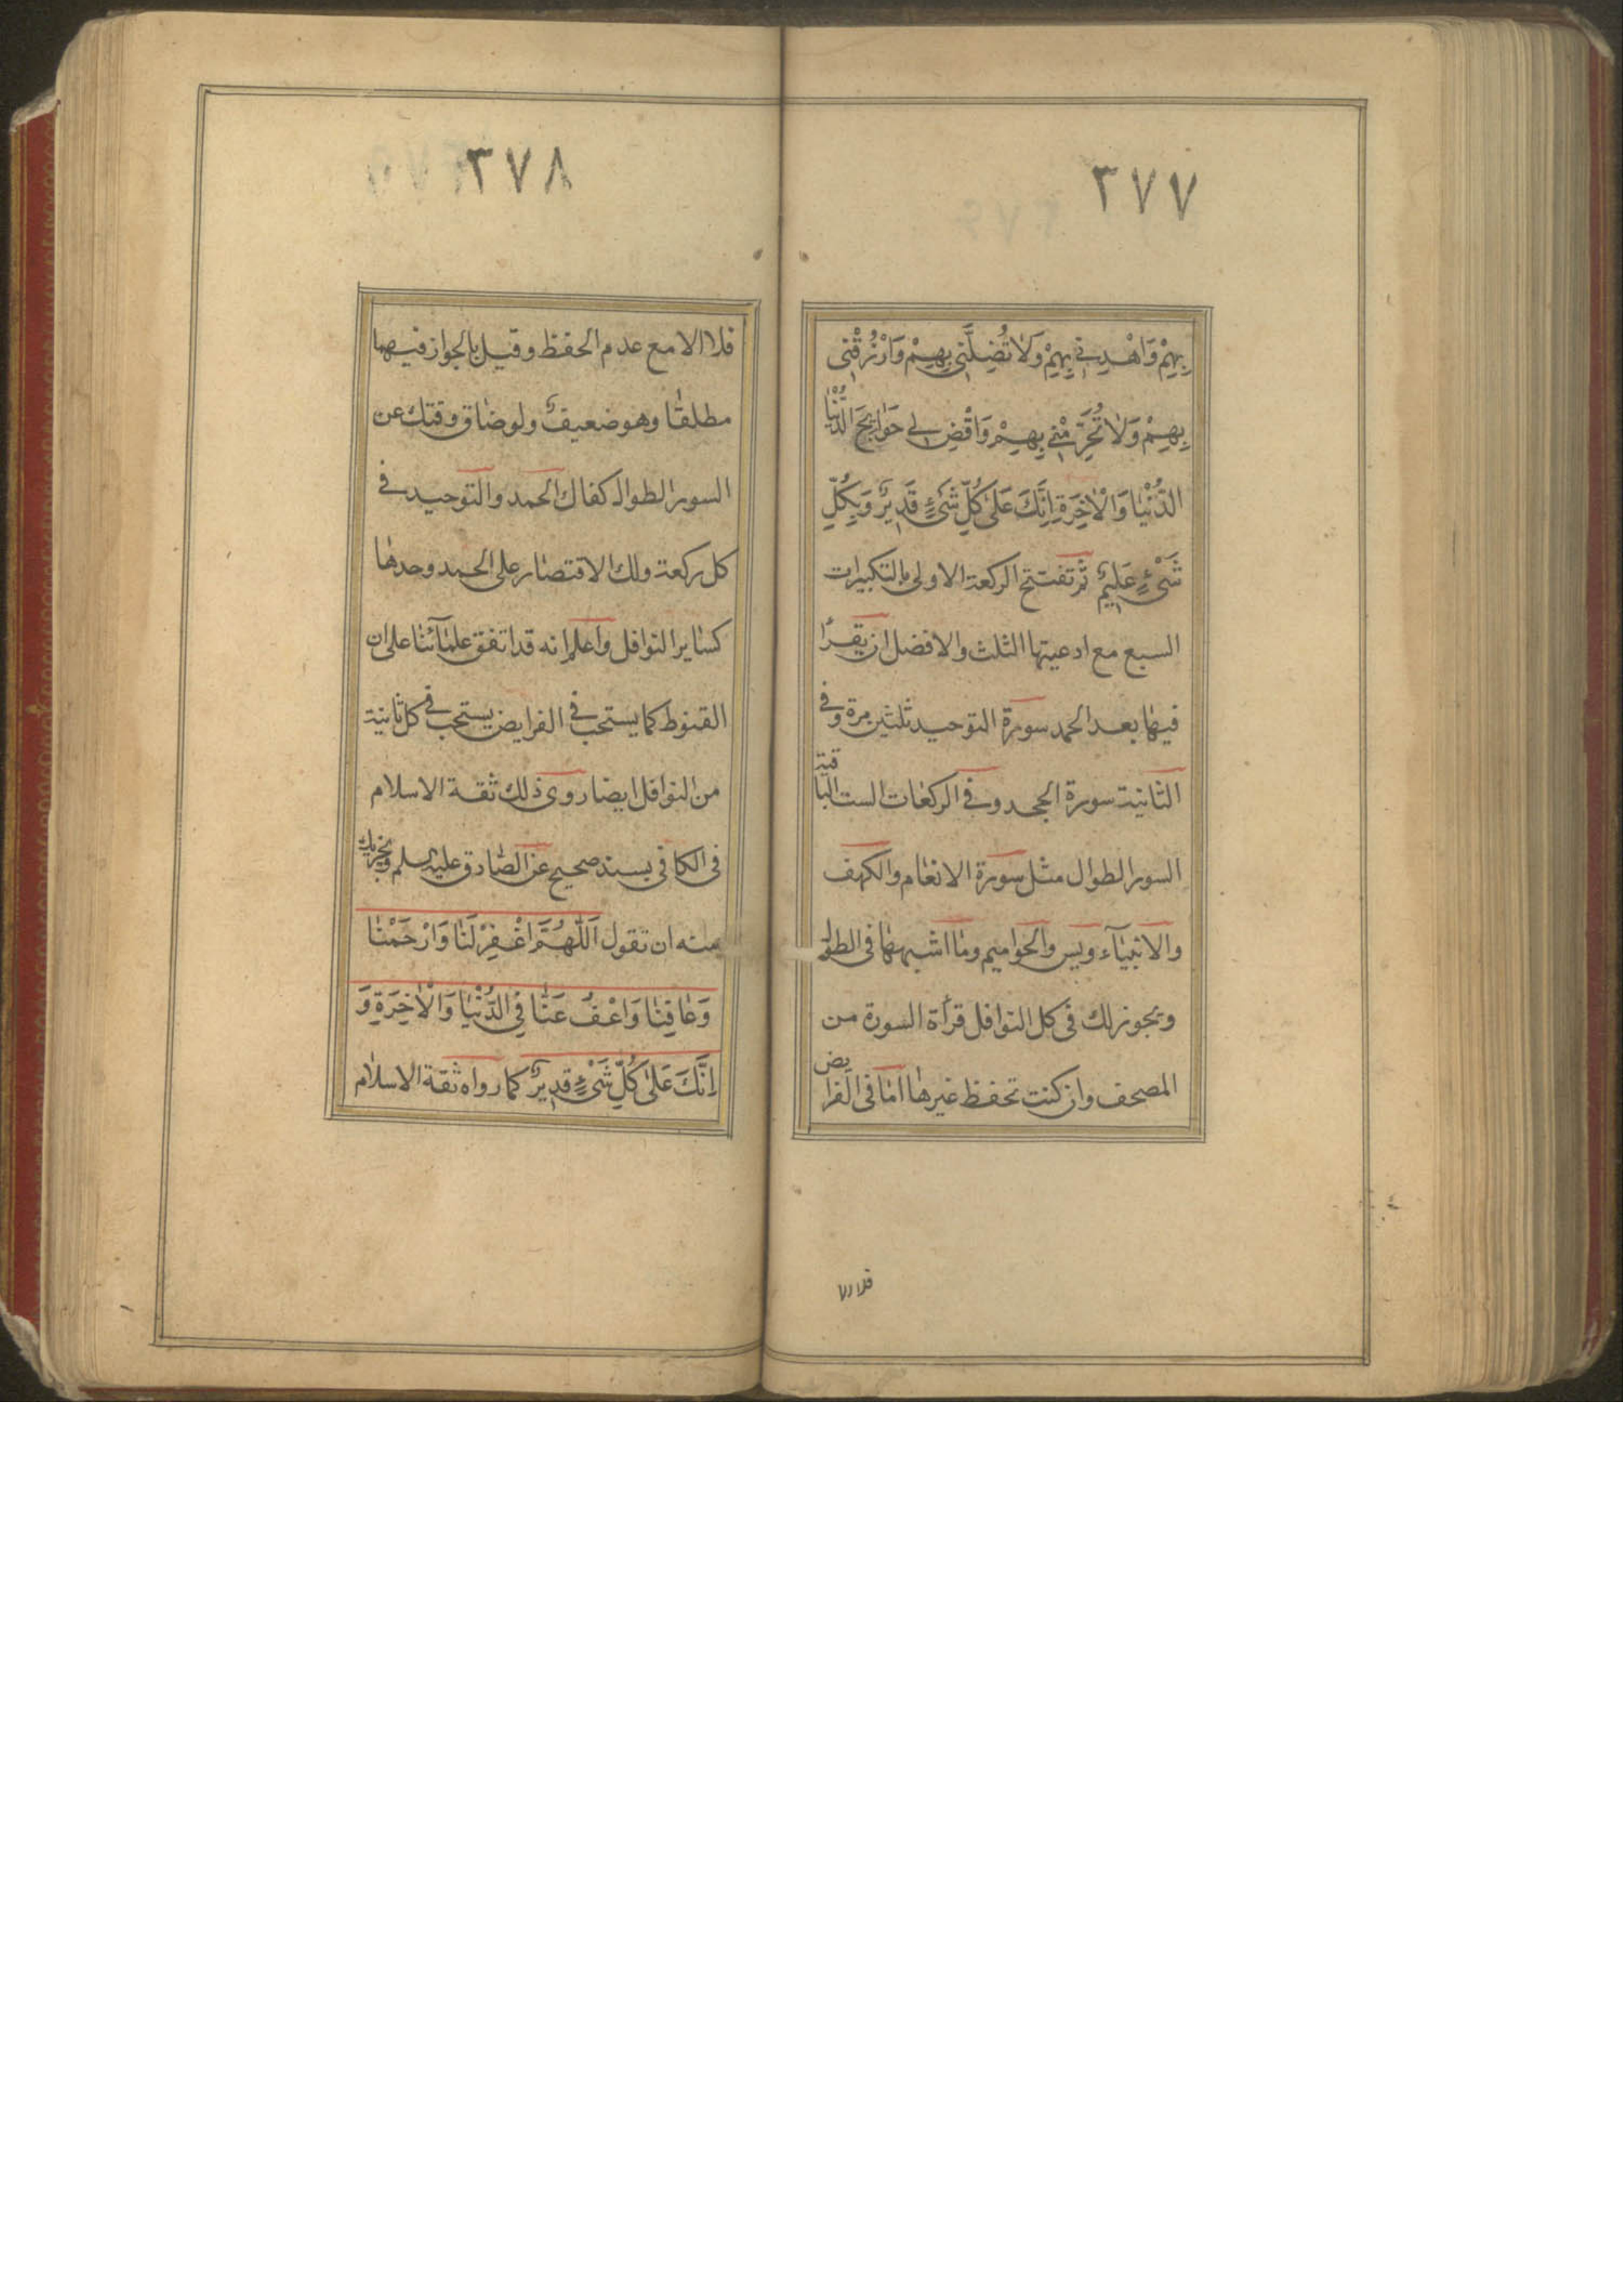 ٣٧٧
بِهِمْ وَاهْدِنِي بِهِمْ وَلَا تُضِلَّنِي بِهِمْ وَارْزُقْنِي
بِهِمْ وَلَا تُحَرِّمْنِي بِهِمْ وَاقْضِ لِي حَوَائِجَ الدُّنْيَا
الدُّنْيَا وَالْآخِرَةِ اِنَّكَ عَلَى كُلِّ شَيْءٍ قَدِيرٌ وَبِكُلِّ
شَيْءٍ عَلِيمٌ ثم تفتتح الركعة الاولى بالتكبيرات
السبع مع ادعيتها الثلث والافضل ان يقرأ
فيها بعد الحمد سورة التوحيد ثلثين مرة وفي
الثانية سورة الجحد وفي الركعات الست الباقية
السور الطوال مثل سورة الانعام والكهف
والانبيآء ويس والحواميم وما اشبهها في الطول
ويجوز لك في كل النوافل قرأة السورة من
المصحف وان كنت تحفظ غيرها اما في الفرايض
فلا الا
٣٧٨
فلا الا مع عدم الحفظ وقيل بالجواز فيهما
مطلقا وهو ضعيف ولو ضاق وقتك عن
السور الطوال كفاك الحمد والتوحيد في
كل ركعة ولك الاقتصار على الحمد وحدها
كساير النوافل واعلم انه قد اتفق علمآئنا على ان
القنوط كما يستحب في الفرايض يستحب في كل ثانية
من النوافل ايضا روى ذلك ثقة الاسلام
في الكافي بسند صحيح عن الصادق عليه السلم ويجزيك
منه ان تقول اَللّٰهُمَّ اغْفِرْ لَنَا وَارْحَمْنَا
وَعَافِنَا وَاعْفُ عَنَّا فِي الدُّنْيَا وَالْآخِرَةِ وَ
اِنَّكَ عَلَى كُلِّ شَيْءٍ قَدِيرٌ كما رواه ثقة الاسلام